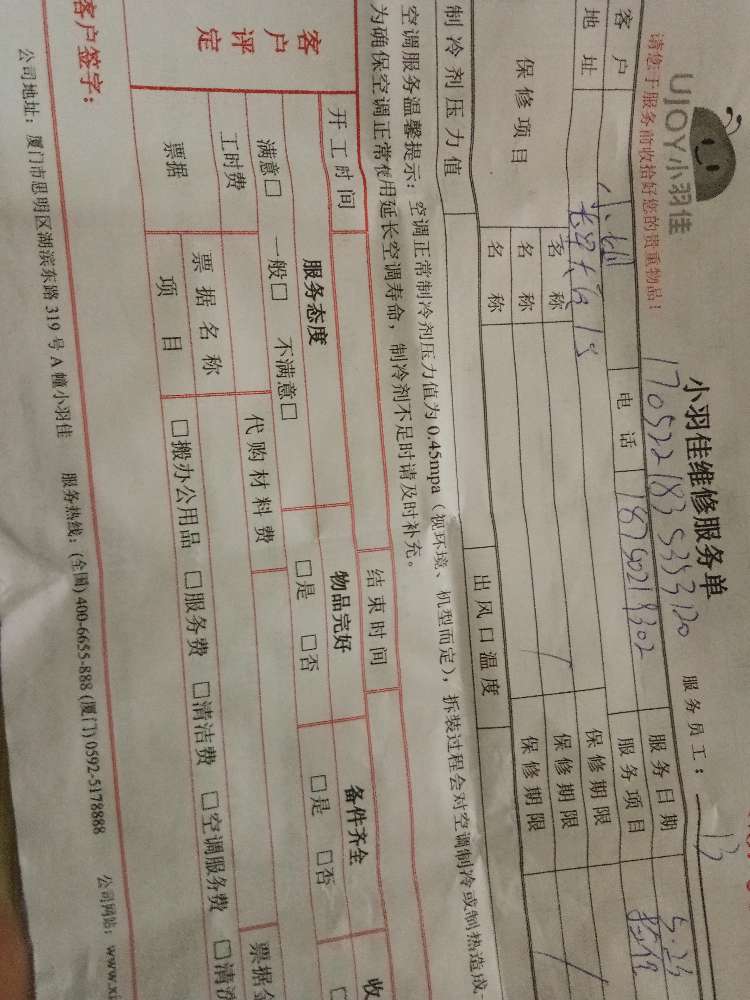 UJOY小羽佳
小羽佳维修服务单
请您于服务前收拾好您的贵重物品！
1705221835353120
服务员工：
客户
电话
18750219302
服务日期
5.23
地址
服务项目
保修项目
名称
保修期限
名称
保修期限
名称
保修期限
制冷剂压力值
出风口温度
空调服务温馨提示：空调正常制冷剂压力值为0.45mpa（视环境、机型而定），拆装过程会对空调制冷或制热造成
为确保空调正常使用延长空调寿命，制冷剂不足时请及时补充。
开工时间
结束时间
客户评定
服务态度
物品完好
备件齐全
收
满意□ 一般□ 不满意□
□是 □否
□是 □否
工时费
代购材料费
票据
票据名称
票据金
项目
□搬办公用品 □服务费 □清洁费 □空调服务费 □清洗
客户签字：
公司地址：厦门市思明区湖滨东路319号A幢小羽佳 服务热线：(全国)400-6655-888 (厦门)0592-5178888 公司网站：www.xi